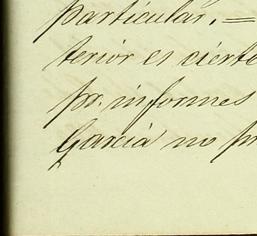 particular. =
terior es cierte
pr. informes
Garcia no pr